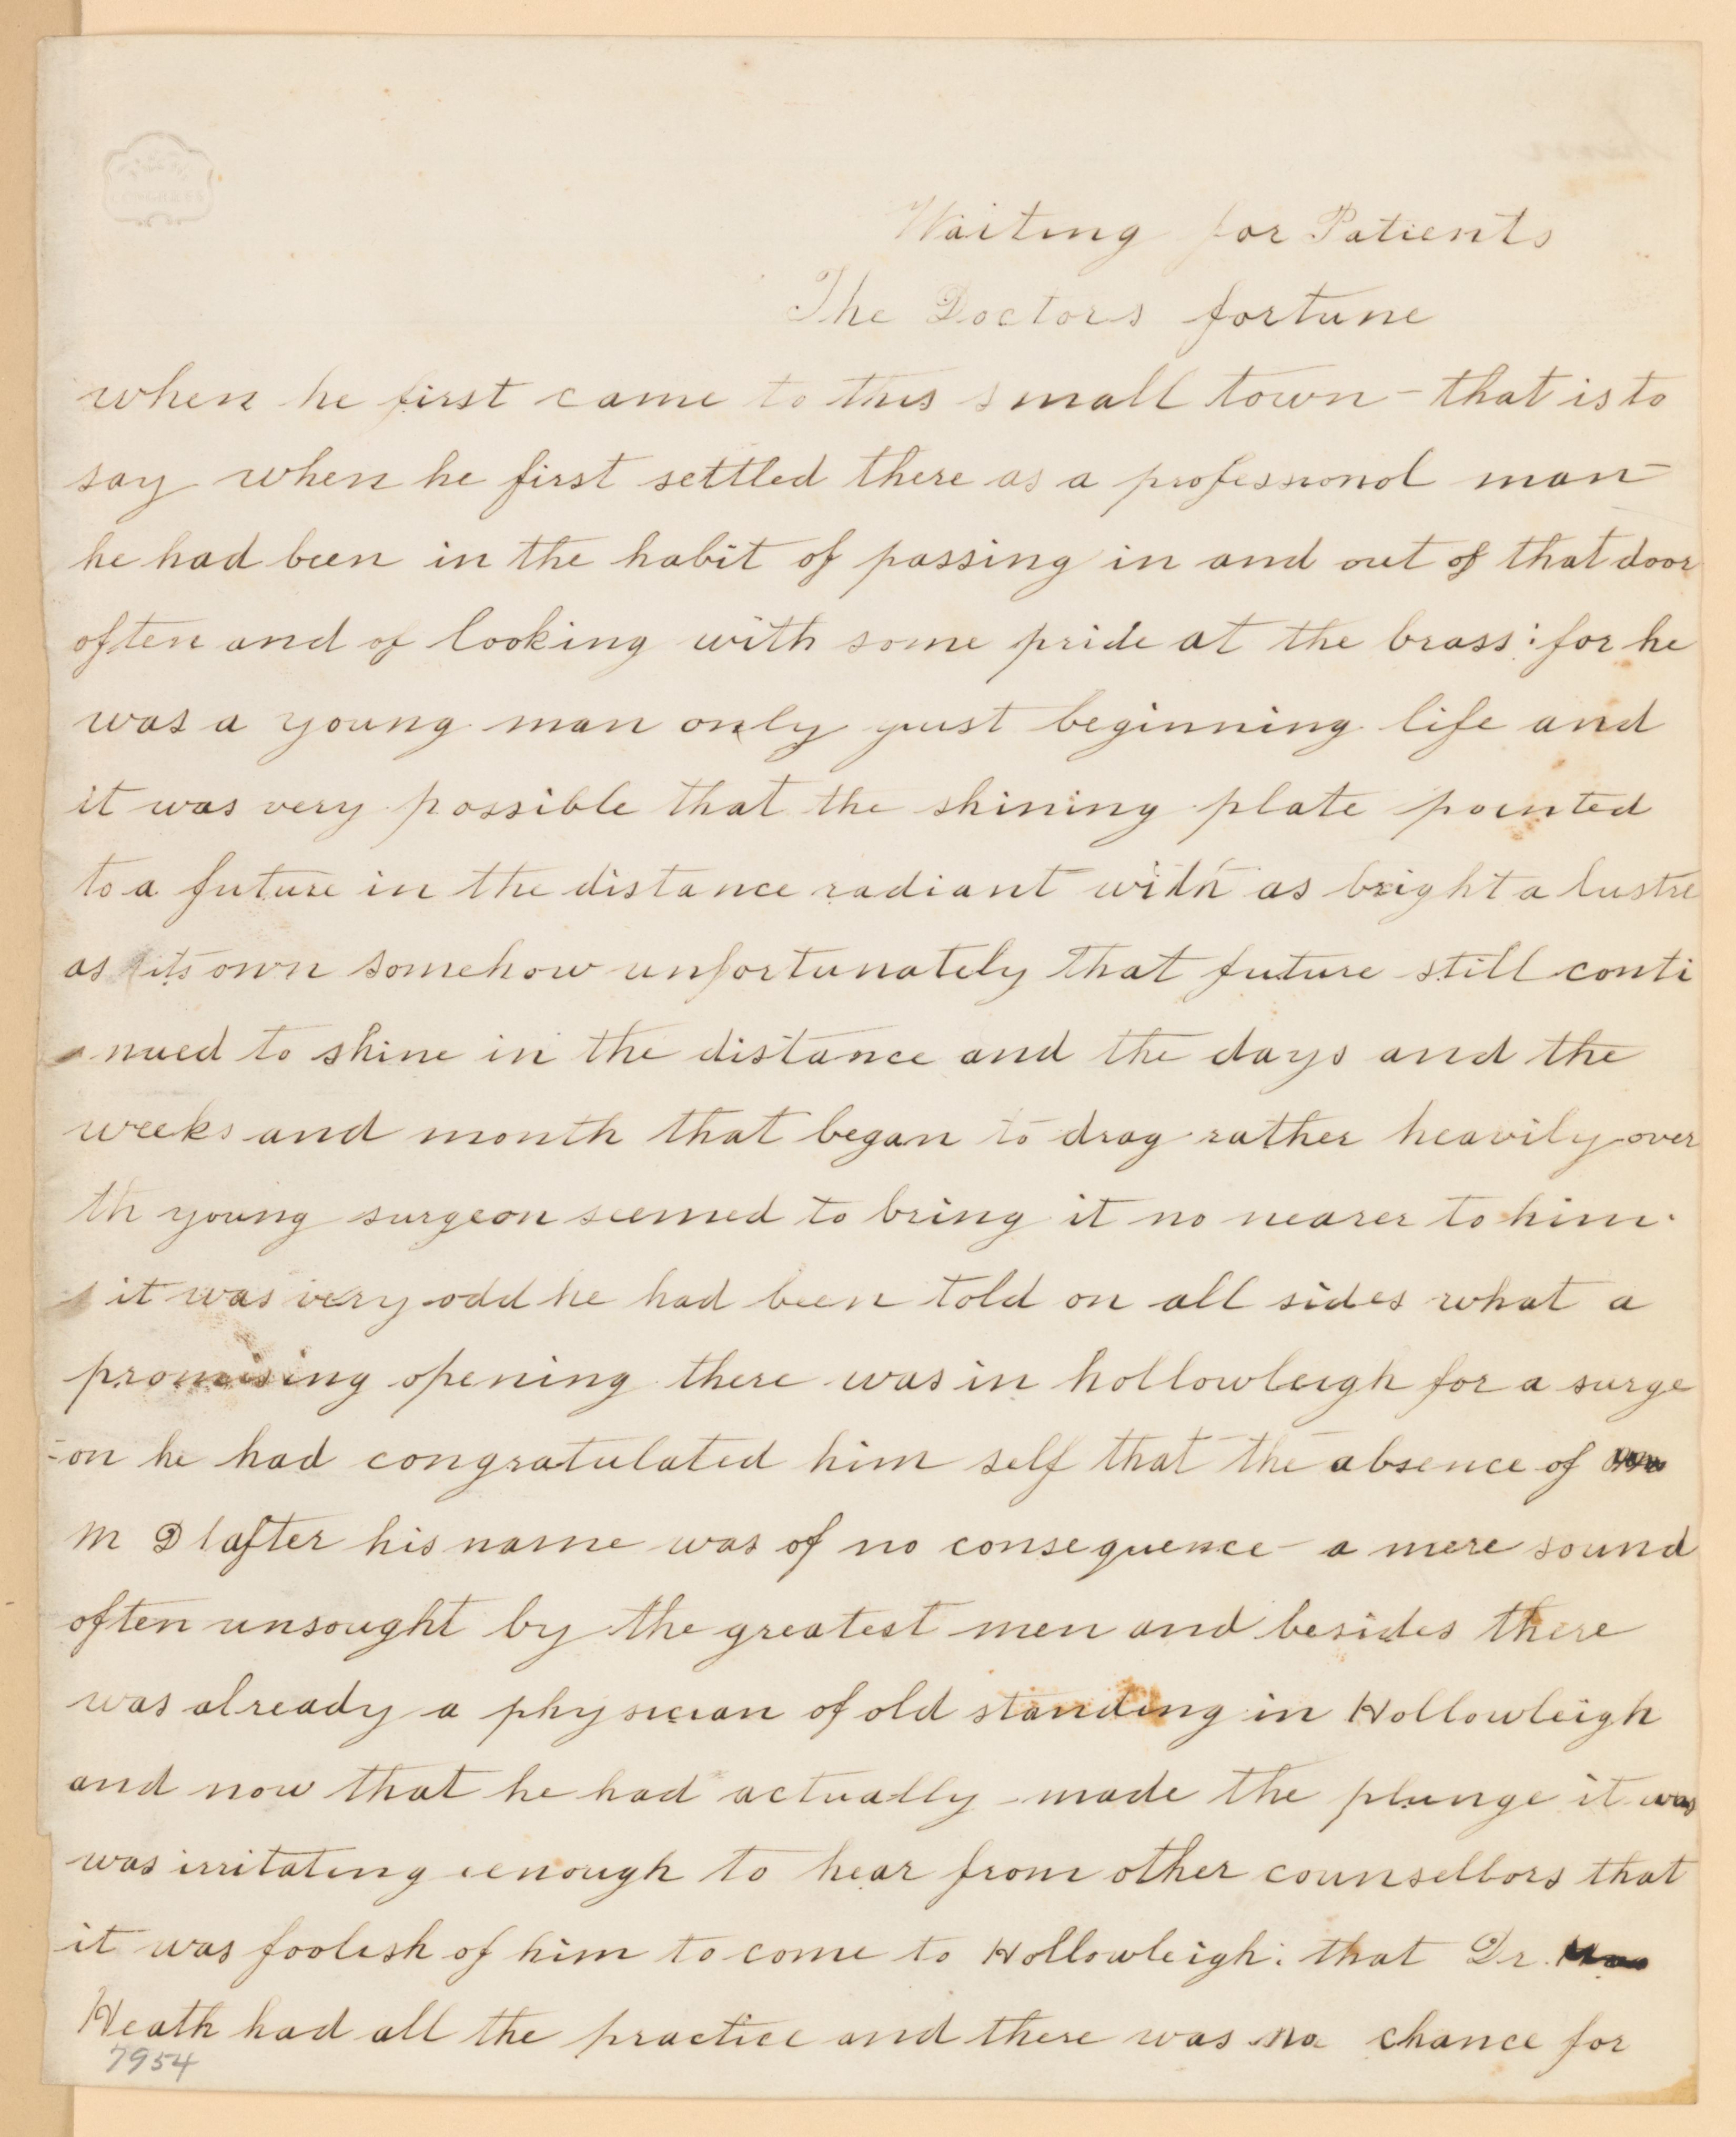 Waiting for Patients
The Doctors fortune
when he first came to this small town - that is to
say when he first settled there as a professional man -
he had been in the habit of passing in and out of that door
often and of looking with some pride at the brass: for he
was a young man only just beginning life and
it was very possible that the shining plate pointed
to a future in the distance radiant with as bright a lustre
as its own somehow unfortunately that future still conti
nued to shine in the distance and the days and the
weeks and month that began to drag rather heavily over
th young surgeon seemed to bring it no nearer to him.
it was very odd he had been told on all sides what a
promising opening there was in hollowleigh for a surge
-on he had congratulated him self that the absence of
M D after his name was of no consequence - a mere sound
often unsought by the greatest men and besides there
was already a physician of old standing in Hollowleigh
and now that he had actually made the plunge it was
was irritating eenough to hear from other counsellors that
it was foolish of him to come to Hollowleigh: that Dr.
Heath had all the practice and there was no chance for
7954